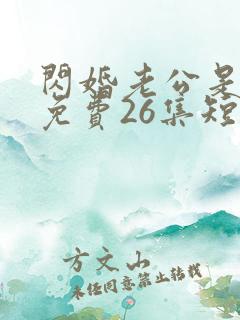 閃婚老公是
免費26集短
方文山
未經同意禁止轉載